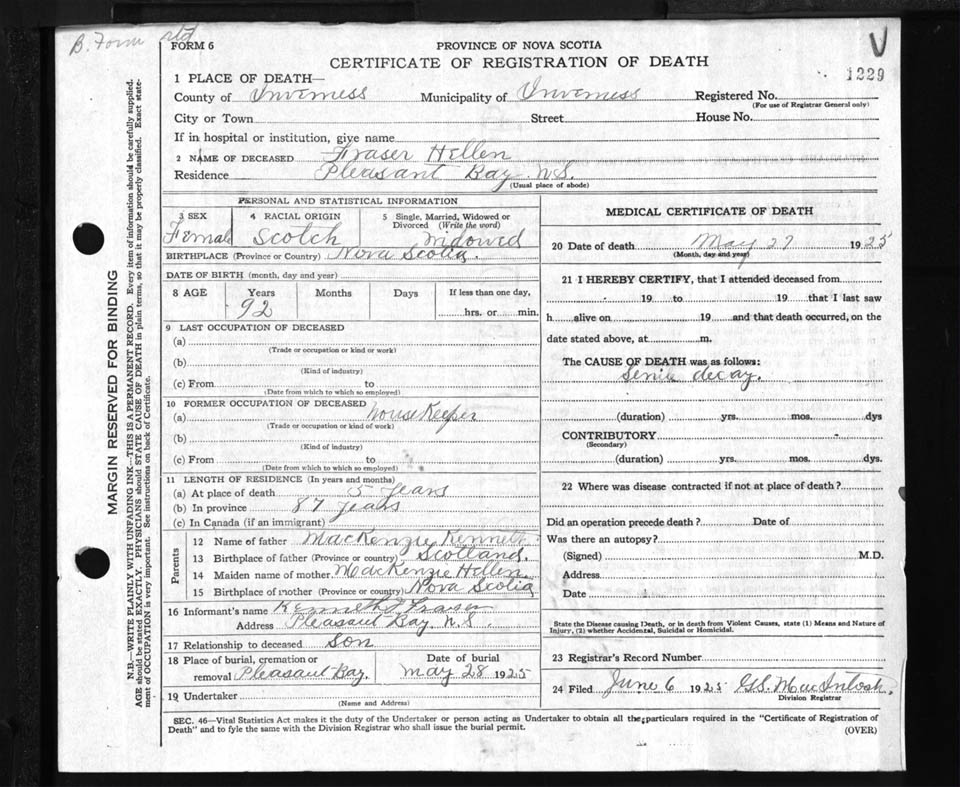 B. Form
FORM 6
PROVINCE OF NOVA SCOTIA
CERTIFICATE OF REGISTRATION OF DEATH
V
1229
1 PLACE OF DEATH—
County of Inverness Municipality of Inverness Registered No.
(For use of Registrar General only)
City or Town Street House No.
If in hospital or institution, give name
2 NAME OF DECEASED Fraser Hellen
Residence Pleasant Bay N.S.
(Usual place of abode)
PERSONAL AND STATISTICAL INFORMATION
3 SEX Female
4 RACIAL ORIGIN Scotch
5 Single, Married, Widowed or Divorced (Write the word) Widowed
BIRTHPLACE (Province or Country) Nova Scotia.
DATE OF BIRTH (month, day and year)
8 AGE Years Months Days If less than one day,
92 hrs. or min.
9 LAST OCCUPATION OF DECEASED
(a)
(Trade or occupation or kind or work)
(b)
(Kind of industry)
(c) From to
(Date from which to which so employed)
10 FORMER OCCUPATION OF DECEASED
(a) House Keeper
(Trade or occupation or kind of work)
(b)
(Kind of industry)
(c) From to
(Date from which to which so employed)
11 LENGTH OF RESIDENCE (In years and months)
(a) At place of death 5 years
(b) In province 87 years
(c) In Canada (if an immigrant)
Parents
12 Name of father MacKenzie Kenneth
13 Birthplace of father (Province or country) Scotland.
14 Maiden name of mother MacKenzie Hellen.
15 Birthplace of mother (Province or country) Nova Scotia
16 Informant's name Kenneth J Fraser
Address Pleasant Bay N.S.
17 Relationship to deceased son
18 Place of burial, cremation or removal Pleasant Bay.
Date of burial
May 28 1925
19 Undertaker
(Name and Address)
MEDICAL CERTIFICATE OF DEATH
20 Date of death May 27 1925
(Month, day and year)
21 I HEREBY CERTIFY, that I attended deceased from
19 to 19 that I last saw
h alive on 19 and that death occurred, on the
date stated above, at m.
The CAUSE OF DEATH was as follows:
Senile decay.
(duration) yrs. mos. dys
CONTRIBUTORY
(Secondary)
(duration) yrs. mos. dys.
22 Where was disease contracted if not at place of death?
Did an operation precede death? Date of
Was there an autopsy?
(Signed) M.D.
Address
Date
State the Disease causing Death, or in death from Violent Causes, state (1) Means and Nature of
Injury, (2) whether Accidental, Suicidal or Homicidal.
23 Registrar's Record Number
24 Filed June 6 1925 G.S. MacIntosh,
Division Registrar
SEC. 46—Vital Statistics Act makes it the duty of the Undertaker or person acting as Undertaker to obtain all the particulars required in the "Certificate of Registration of
Death" and to fyle the same with the Division Registrar who shall issue the burial permit.
(OVER)
MARGIN RESERVED FOR BINDING
N.B.—WRITE PLAINLY WITH UNFADING INK—THIS IS A PERMANENT RECORD. Every item of information should be carefully supplied.
AGE should be stated EXACTLY. PHYSICIANS should STATE CAUSE OF DEATH in plain terms, so that it may be properly classified. Exact state-
ment of OCCUPATION is very important. See instructions on back of Certificate.